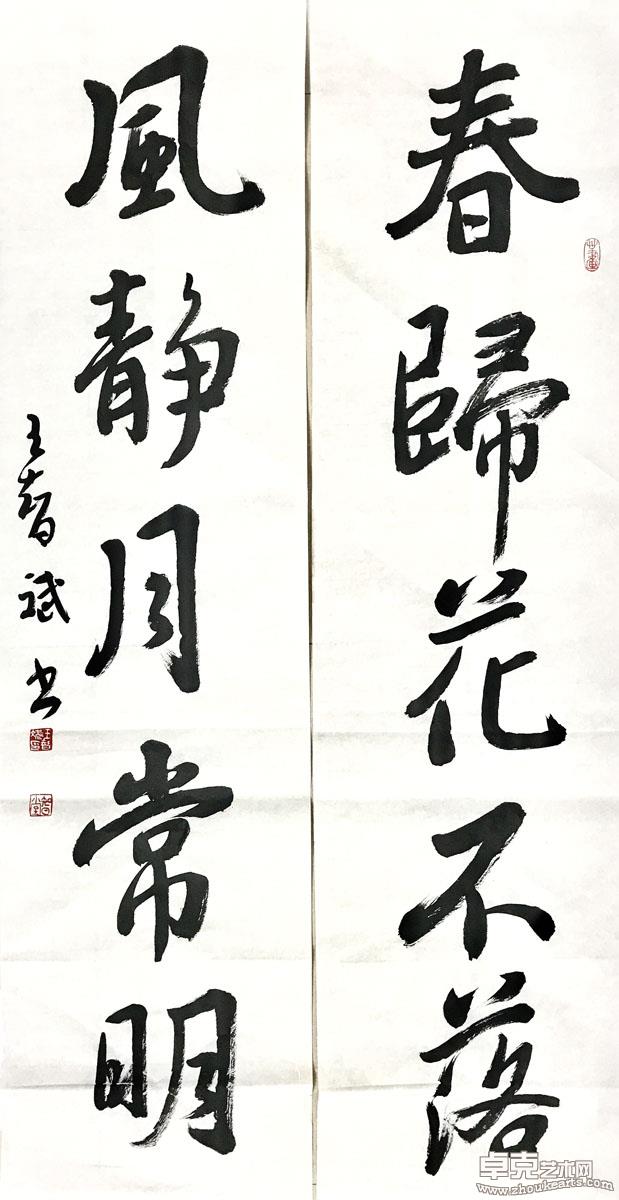 春歸花不落
風靜月常明
王智斌书
卓克艺术网
www.zhoukearts.com